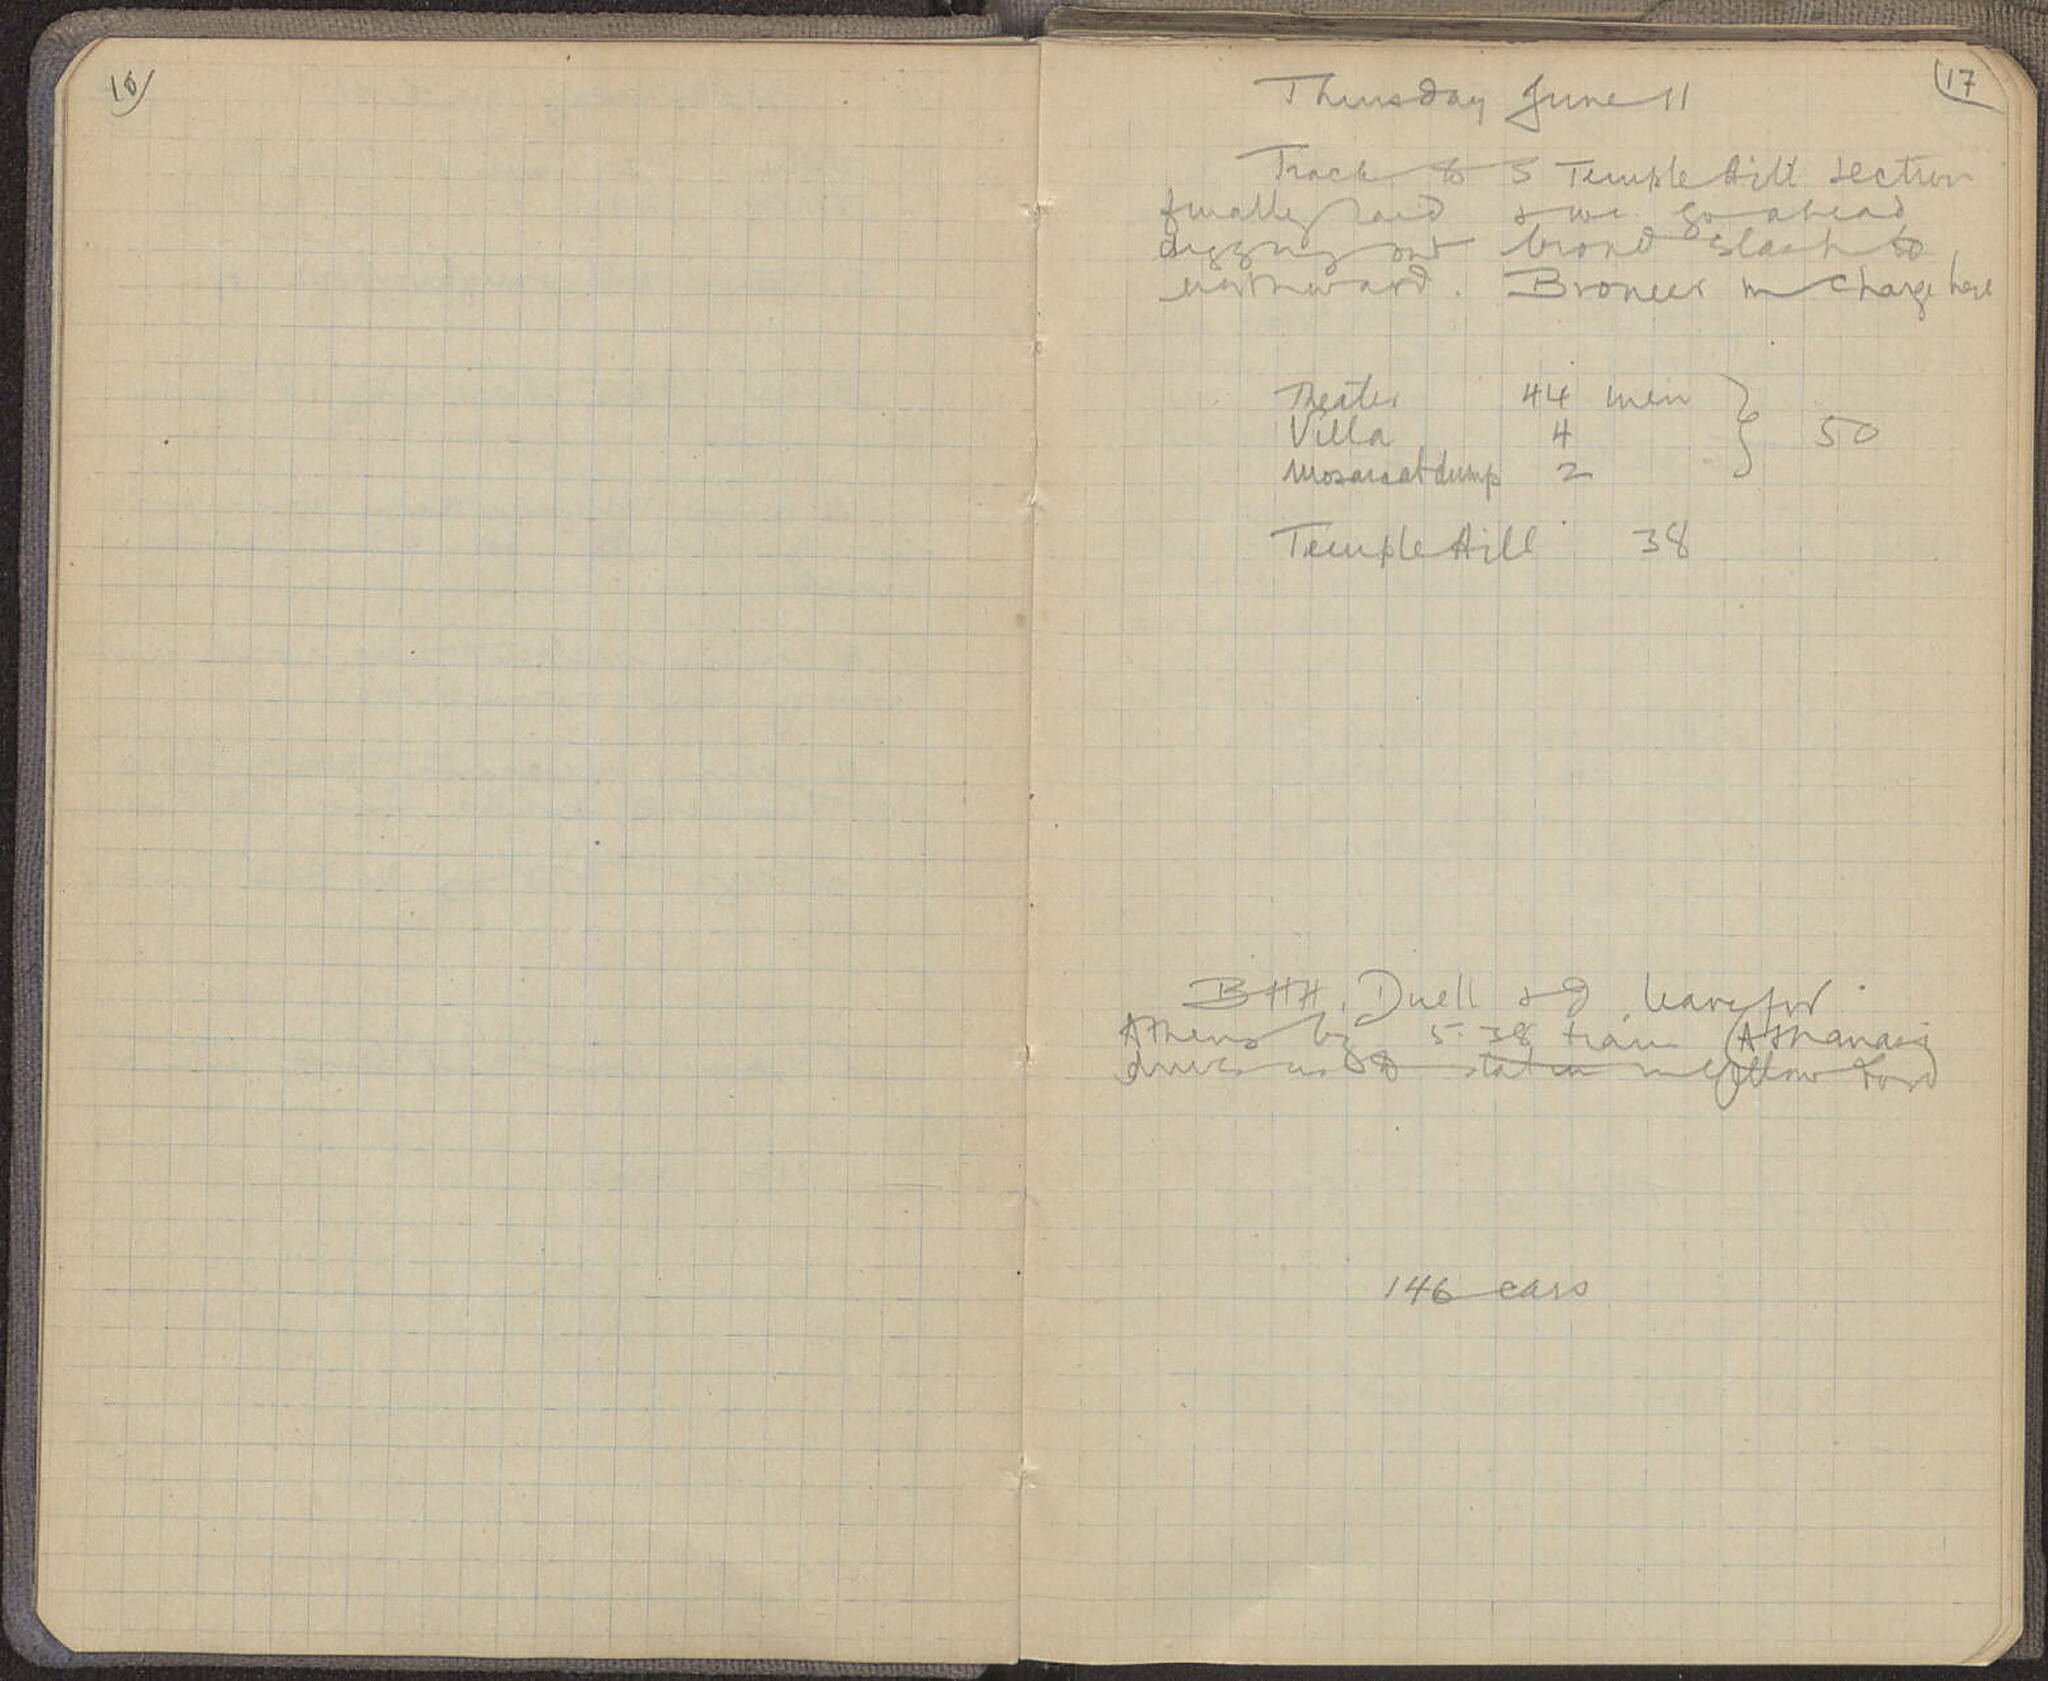 16
17
Thursday June 11
Track to S Temple Hill section
finally laid & we go ahead
digging out broad slash to
northward. Broneer in charge here
Theater 44 men
Villa 4 } 50
Mosaic at dump 2
Temple Hill 38
BHH, Duell & I leave for
Athens by 5.38 train (Athanasi
drives us to station in yellow Ford
146 cars